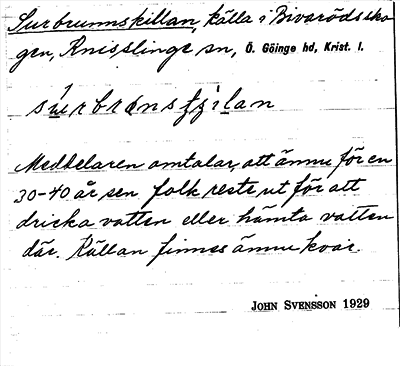 Surbrunnskillan, källa i Bivarödssko-
gen, Knisslinge sn, Ö. Göinge hd, Krist. l.
Meddelaren omtalar, att ännu för en
30-40 år sen folk reste ut för att
dricka vatten eller hämta vatten
där. Källan finnes ännu kvar.
JOHN SVENSSON 1929